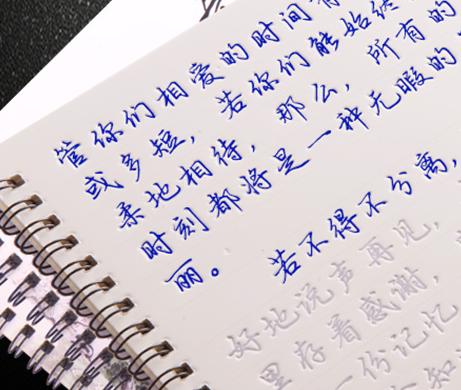 管你们相爱的时间
或多短，若你们能始终
柔地相待，那么，所有的
时刻都将是一种无瑕的
丽。 若不得不分离，
好地说声再见，
里存着感谢，
一份记忆